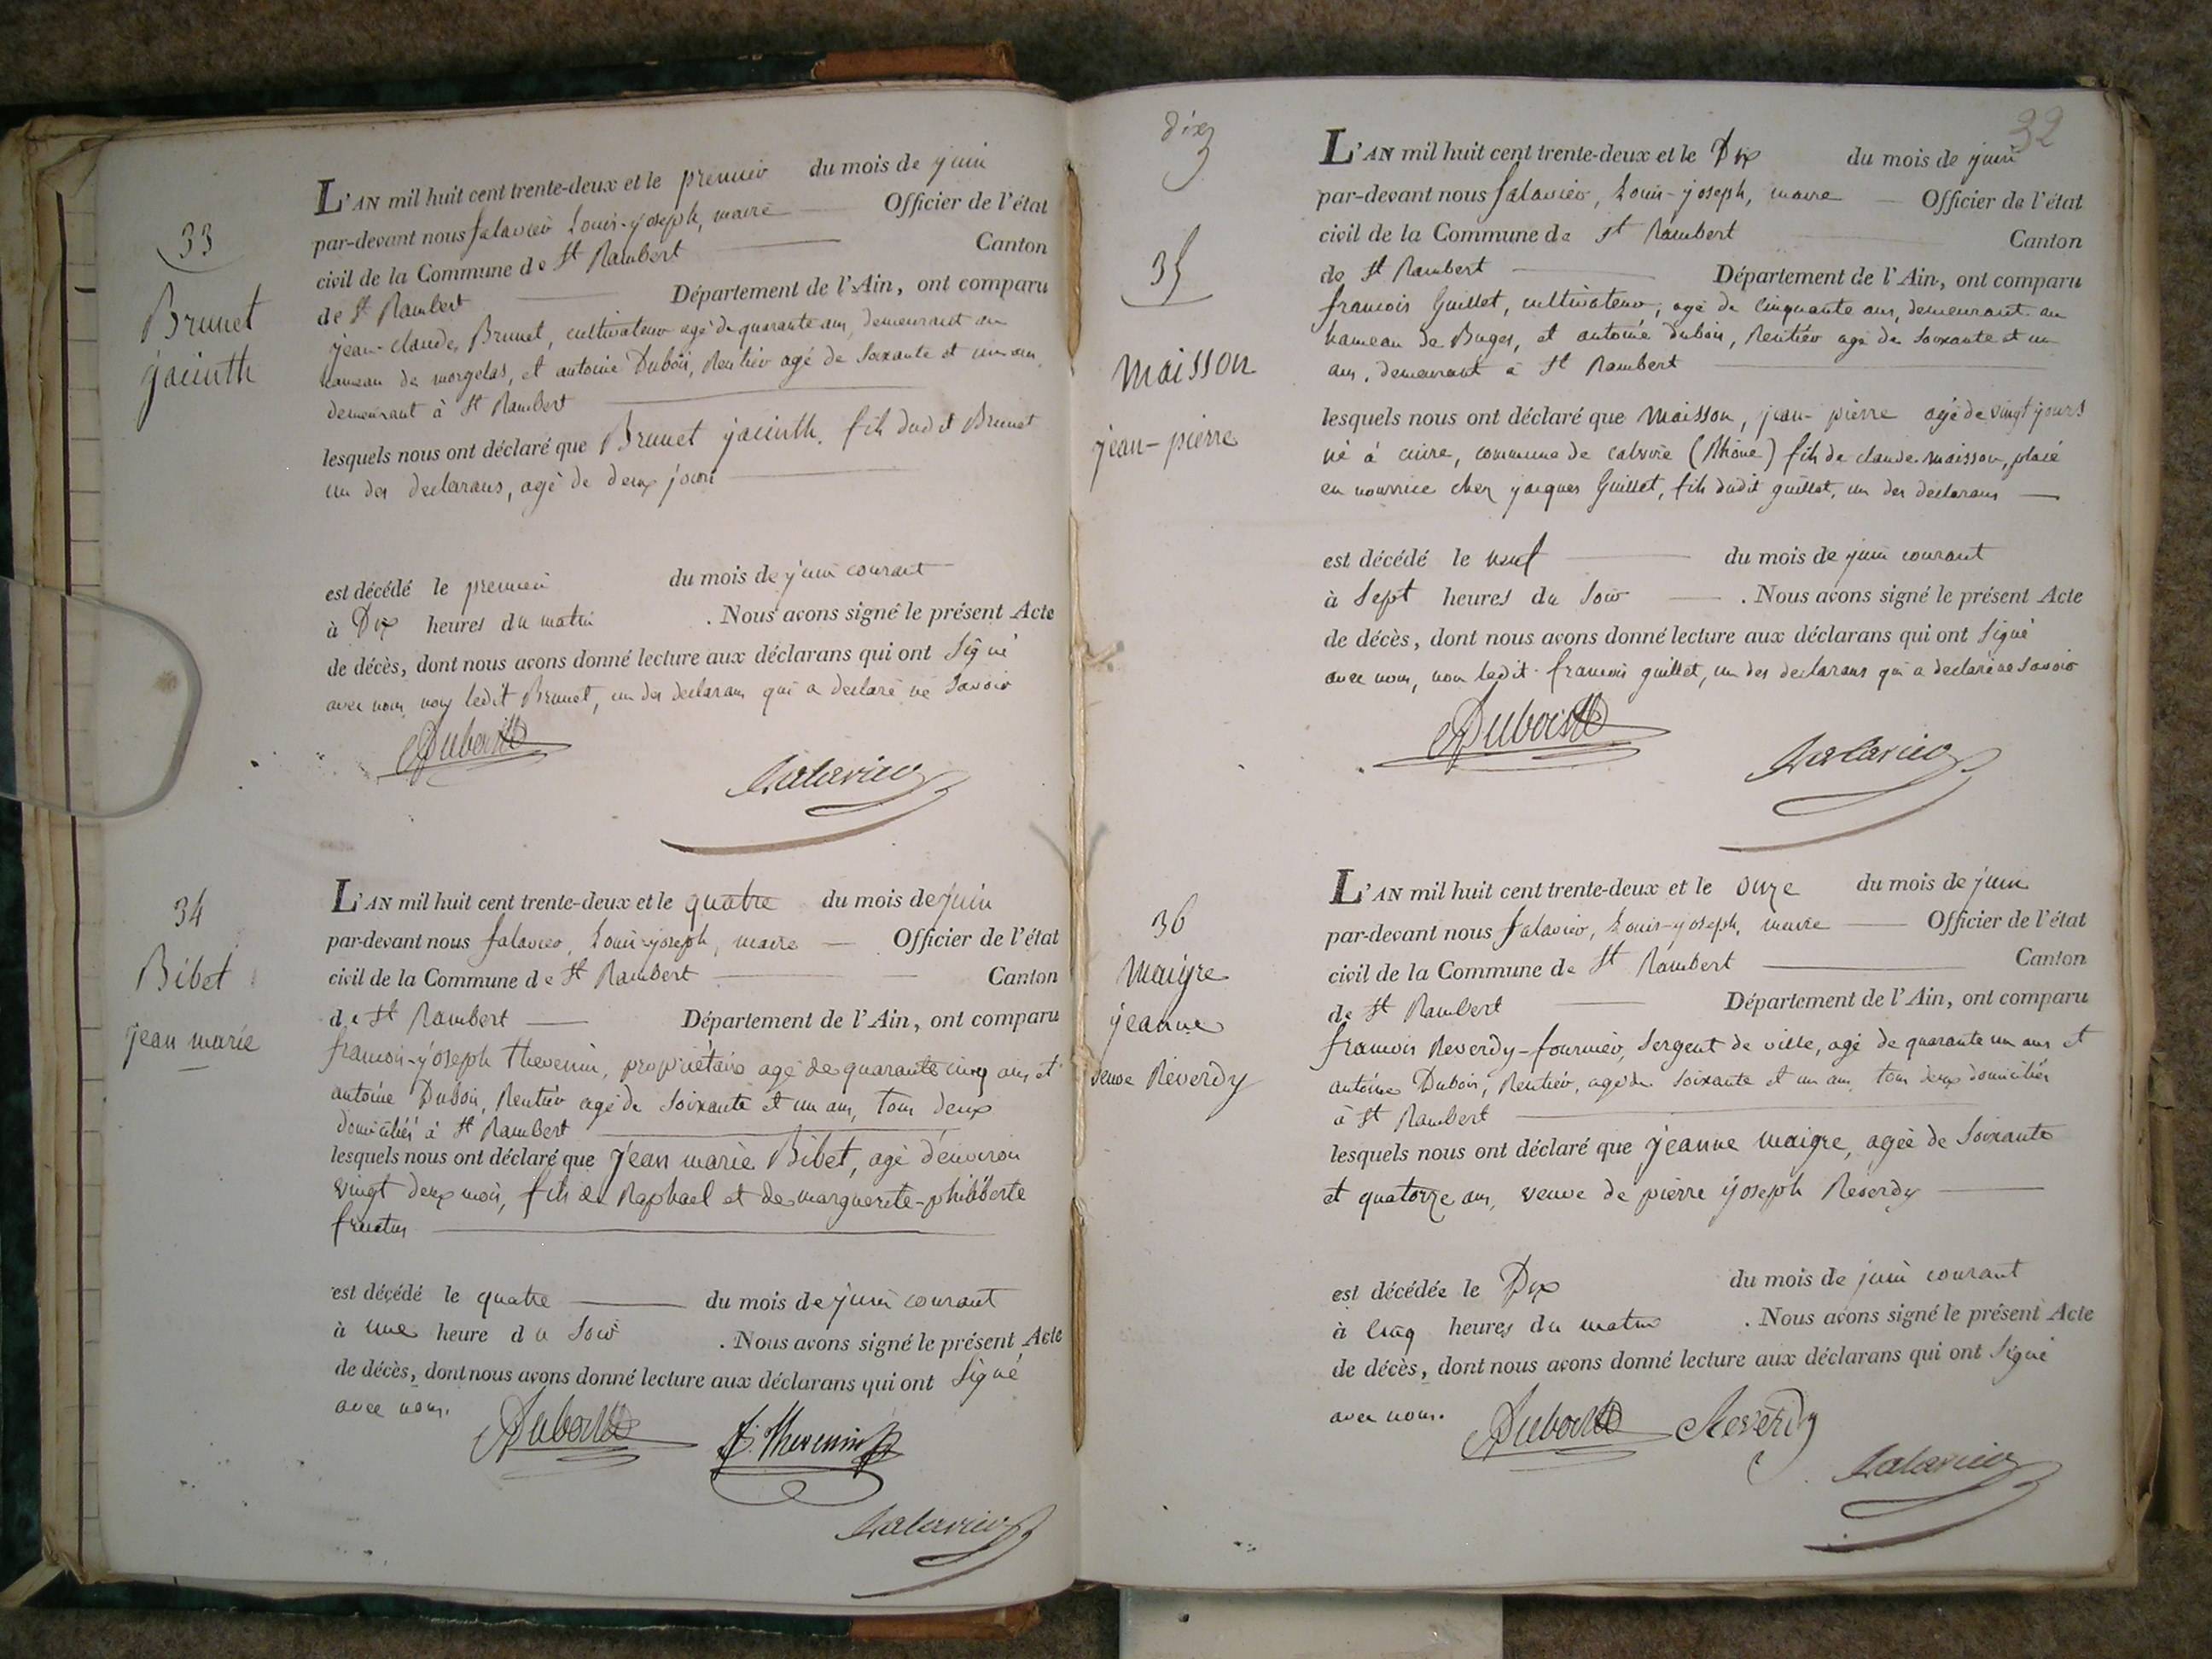 33
Brunet
jacinth
L'AN mil huit cent trente-deux et le premier du mois de juin
par-devant nous Salavier Louis-joseph, maire Officier de l'état
civil de la Commune de St Rambert Canton
de St Rambert Département de l'Ain, ont comparu
jean-claude Brunet, cultivateur agé de quarante ans, demeurant au
hameau de morgelas, et antoine Dubois, Rentier agé de Soixante et un ans
demeurant à St Rambert
lesquels nous ont déclaré que Brunet jacinth, fils dudit Brunet
un des declarans, agé de deux jours
est décédé le premier du mois de juin courant
à Dix heures du matin . Nous avons signé le présent Acte
de décès, dont nous avons donné lecture aux déclarans qui ont Signé
avec nous, non ledit Brunet, un des declarans qui a declaré ne Savoir
Dubois
Salavier
34
Bibet
jean marie
L'AN mil huit cent trente-deux et le quatre du mois de juin
par-devant nous Salavier, Louis-joseph, maire Officier de l'état
civil de la Commune de St Rambert Canton
de St Rambert Département de l'Ain, ont comparu
francois-joseph thevenin, propriétaire agé de quarante cinq ans et
antoine Dubois, Rentier agé de Soixante et un ans, tous deux
domiciliés à St Rambert
lesquels nous ont déclaré que jean marie Bibet, agé d'environ
vingt deux mois, fils de Raphael et de marguerite-philiberte
fructus
est décédé le quatre du mois de juin courant
à une heure du Soir . Nous avons signé le présent Acte
de décès, dont nous avons donné lecture aux déclarans qui ont Signé
avec nous.
Dubois f. Thevenin
Salavier
dix
32
35
Maisson
jean-pierre
L'AN mil huit cent trente-deux et le Dix du mois de juin
par-devant nous Salavier, Louis-joseph, maire Officier de l'état
civil de la Commune de St Rambert Canton
de St Rambert Département de l'Ain, ont comparu
francois Guillet, cultivateur, agé de Cinquante ans, demeurant au
hameau de Buges, et antoine Dubois, Rentier agé de Soixante et un
ans, demeurant à St Rambert
lesquels nous ont déclaré que Maisson, jean-pierre agé de vingt jours
né à cuire, commune de caluire (Rhône) fils de claude maisson, placé
en nourrice chez jacques Guillet, fils dudit guillet, un des declarans
est décédé le neuf du mois de juin courant
à Sept heures du Soir . Nous avons signé le présent Acte
de décès, dont nous avons donné lecture aux déclarans qui ont Signé
avec nous, non ledit francois guillet, un des declarans qui a declaré ne Savoir
Dubois
Salavier
36
Maigre
jeanne
veuve Reverdy
L'AN mil huit cent trente-deux et le onze du mois de juin
par-devant nous Salavier, Louis-joseph, maire Officier de l'état
civil de la Commune de St Rambert Canton
de St Rambert Département de l'Ain, ont comparu
francois Reverdy-fournier, Sergent de ville, agé de quarante un ans et
antoine Dubois, Rentier, agé de Soixante et un ans, tous deux domiciliés
à St Rambert
lesquels nous ont déclaré que jeanne Maigre, agée de Soixante
et quatorze ans, veuve de pierre joseph Reverdy
est décédée le Dix du mois de juin courant
à Cinq heures du matin . Nous avons signé le présent Acte
de décès, dont nous avons donné lecture aux déclarans qui ont Signé
avec nous.
Dubois Reverdy
Salavier